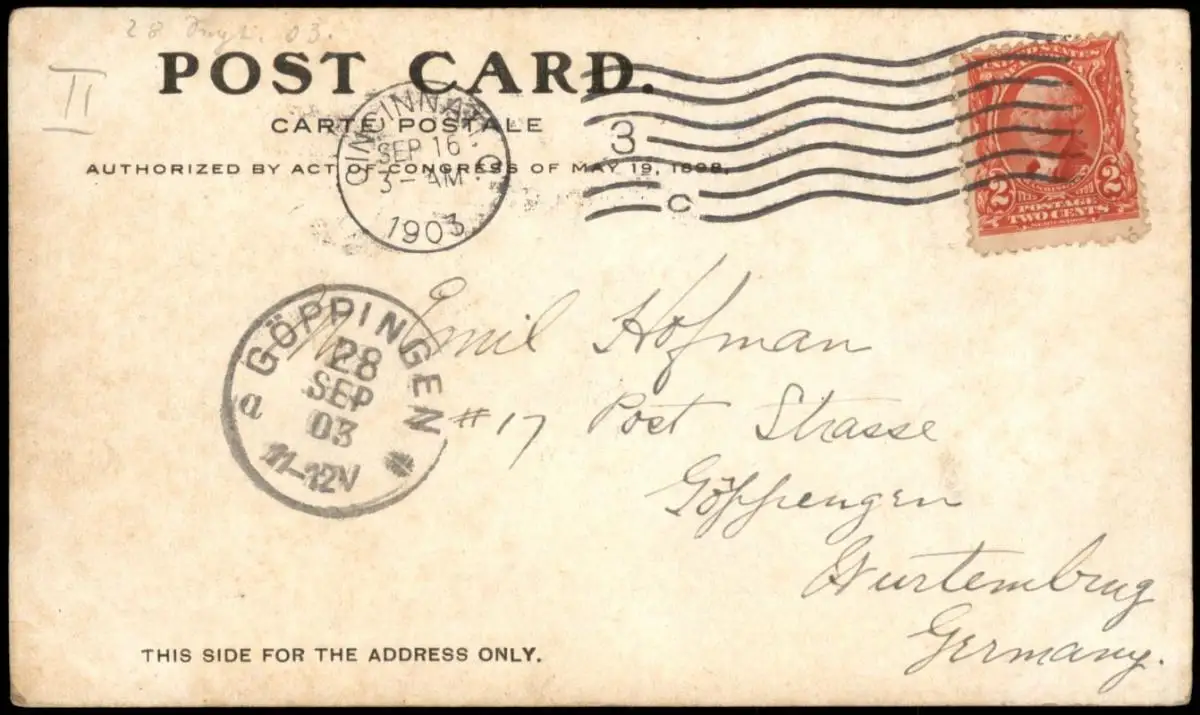 28 Sept. 03.
II
POST CARD.
CARTE POSTALE
AUTHORIZED BY ACT OF CONGRESS OF MAY 19, 1898.
CINCINNATI, O.
SEP 16
3-AM
1903
3
C
UNITED STATES
2 2
WASHINGTON
1732 1799
POSTAGE
TWO CENTS
GÖPPINGEN
28
SEP
03
11-12V
a
Emil Hofman
#17 Post Strasse
Göppengen
Wurtemburg
Germany.
THIS SIDE FOR THE ADDRESS ONLY.